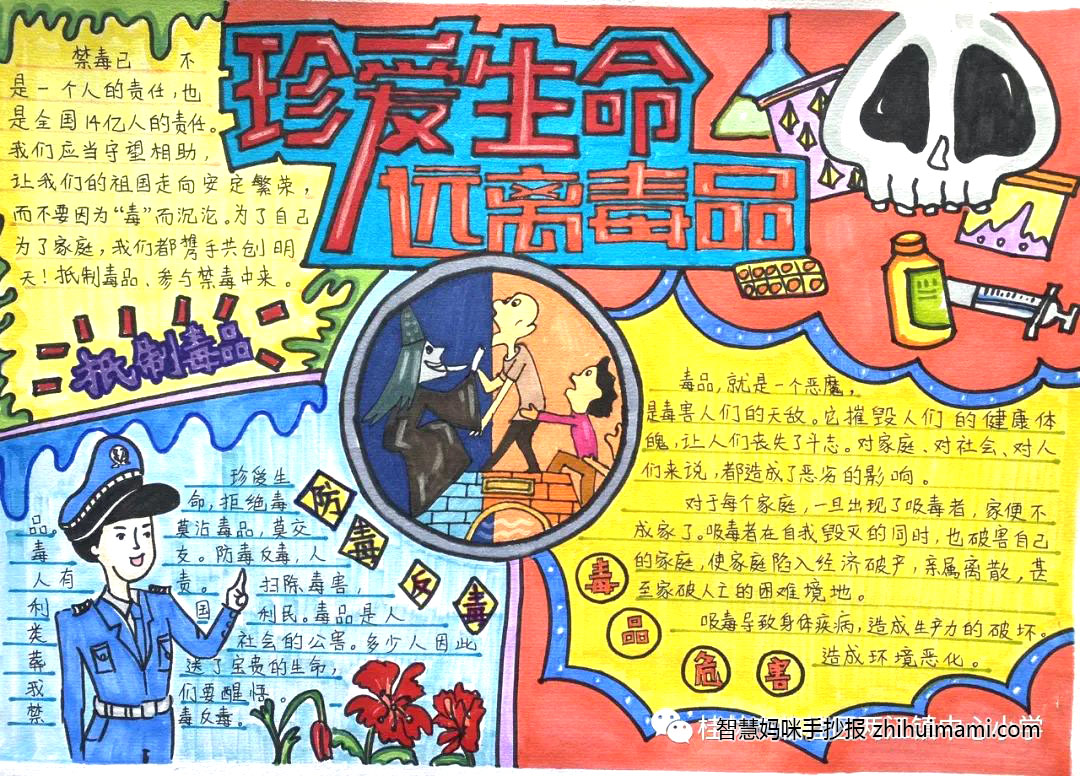 珍爱生命
远离毒品
禁毒已 不
是一个人的责任,也
是全国14亿人的责任。
我们应当守望相助,
让我们的祖国走向安定繁荣,
而不要因为“毒”而沉沦。为了自己
为了家庭,我们都携手共创明
天!抵制毒品、参与禁毒中来。
抵制毒品
毒品,就是一个恶魔,
是毒害人们的天敌。它摧毁人们的健康体
魄,让人们丧失了斗志。对家庭、对社会、对人
们来说,都造成了恶劣的影响。
对于每个家庭,一旦出现了吸毒者,家便不
成家了。吸毒者在自我毁灭的同时,也破害自己
的家庭,使家庭陷入经济破产,亲属离散,甚
至家破人亡的困难境地。
吸毒导致身体疾病,造成生产力的破坏。
造成环境恶化。
毒品危害
防毒反毒
珍爱生
命,拒绝毒
品。 莫沾毒品,莫交
毒 友。防毒反毒,人
人有 责。 扫除毒害,
利 国 利民。毒品是人
类 社会的公害。多少人因此
葬 送了宝贵的生命,
我 们要醒悟。
禁 毒反毒。
智慧妈咪手抄报 zhihuimami.com
中心小学